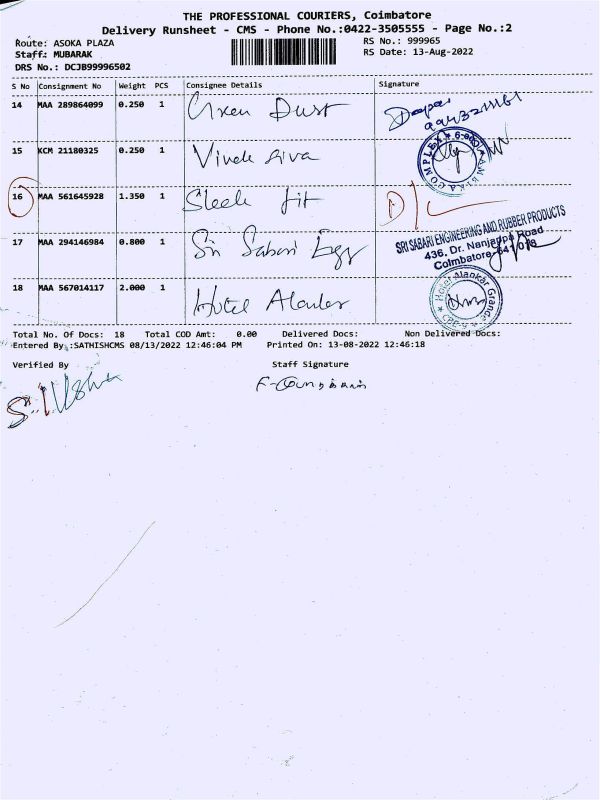 THE PROFESSIONAL COURIERS, Coimbatore
Delivery Runsheet - CMS - Phone No.:0422-3505555 - Page No.:2
Route: ASOKA PLAZA RS No.: 999965
Staff: MUBARAK RS Date: 13-Aug-2022
DRS No.: DCJB99996502
S No Consignment No Weight PCS Consignee Details Signature
14 MAA 289864099 0.250 1 Dust
15 KCM 21180325 0.250 1 Vivek siva
COMPLEX
16 MAA 561645928 1.350 1 Sleek fit D/L
17 MAA 294146984 0.800 1 Sri Sabari Engg
SRI SABARI ENGINEERING AND RUBBER PRODUCTS
436, Dr. Nanjappa Road
Coimbatore-641018
18 MAA 567014117 2.000 1 Hotel
Total No. Of Docs: 18 Total COD Amt: 0.00 Delivered Docs: Non Delivered Docs:
Entered By :SATHISHCMS 08/13/2022 12:46:04 PM Printed On: 13-08-2022 12:46:18
Verified By Staff Signature